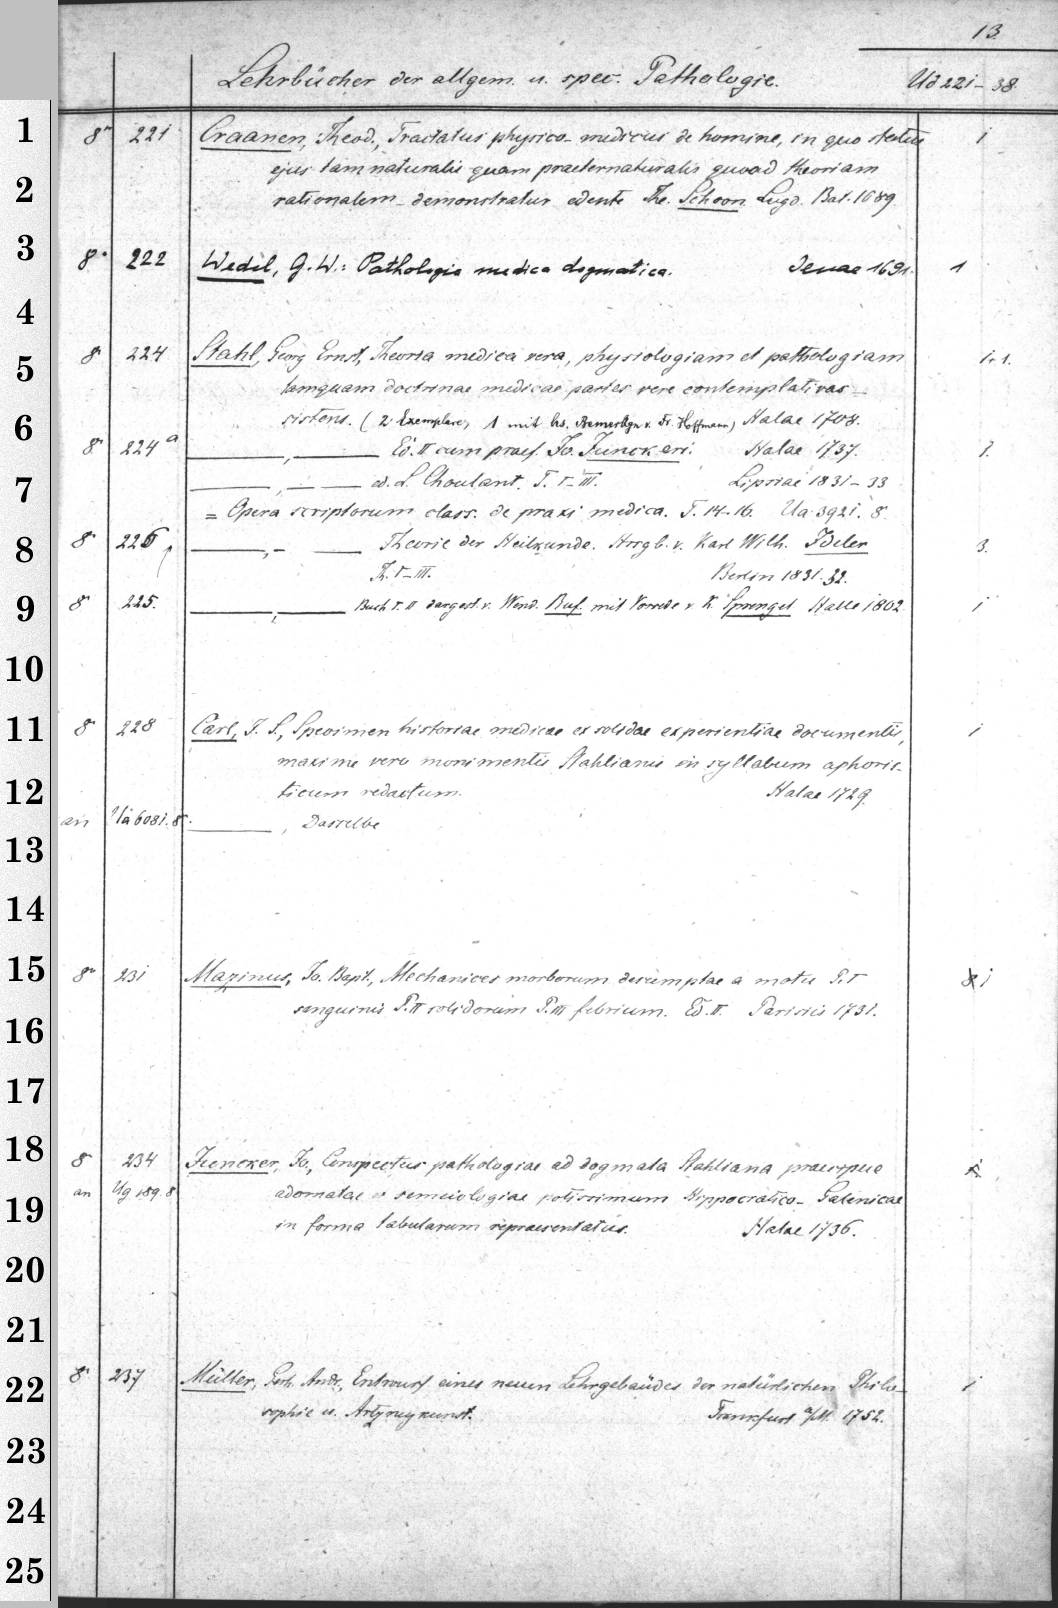 13.
Lehrbücher der allgem. u. spec. Pathologie. Ud 221-38.
1 8° 221 Craanen, Theod., Tractatus physico-medicus de homine, in quo status 1
2 ejus tam naturalis quam praeternaturalis quoad theoriam
rationalem demonstratur edente Th. Schoon. Lugd. Bat. 1689
3 8° 222 Wedel, G. W.: Pathologia medica dogmatica. Jenae 1691. 1
4
5 8° 224 Stahl, Georg Ernst, Theoria medica vera, physiologiam et pathologiam 1+1.
tamquam doctrinae medicae partes vere contemplativas
6 sistens. (2 Exemplare, 1 mit hs. Bemerkgn v. Fr. Hoffmann) Halae 1708.
8° 224a ———, ——— Ed. II cum praef. Jo. Junckeri. Halae 1737. 1.
7 ———, — — ed. L. Choulant. T. I-III. Lipsiae 1831-33
= Opera scriptorum class. de praxi medica. T. 14-16. Ua 3921. 8°
8 8° 226 ———, - — Theorie der Heilkunde. Hrsgb. v. Karl Wilh. Ideler 3.
Th. I-III. Berlin 1831. 32.
9 8° 225. ———, ——— Buch I. II dargest. v. Wend. Ruf. mit Vorrede v K. Sprengel Halle 1802 1
10
11 8° 228 Carl, J. S., Specimen historiae medicae ex solidae experientiae documentis, 1
maxime vero monimentis Stahlianis in syllabum aphoris-
12 ticum redactum. Halae 1729.
an Ua 6081. 8°. ———, Dasselbe
13
14
15 8° 231 Mazinus, Jo. Bapt., Mechanices morborum desumptae a motu P. I 1
16 sanguinis P. II solidorum P. III febrium. Ed. II. Parisiis 1731.
17
18 8° 234 Juncker, Jo., Conspectus pathologiae ad dogmata Stahliana praecipue 1
an Ug 189. 8 adornatae et semeiologiae potissimum Hippocratico-Galenicae
19 in forma tabularum repraesentatus. Halae 1736.
20
21
22 8° 237 Müller, Gerh. Andr., Entwurf eines neuen Lehrgebäudes der natürlichen Philo- 1
sophie u. Artzneykunst. Frankfurt a/M. 1752.
23
24
25